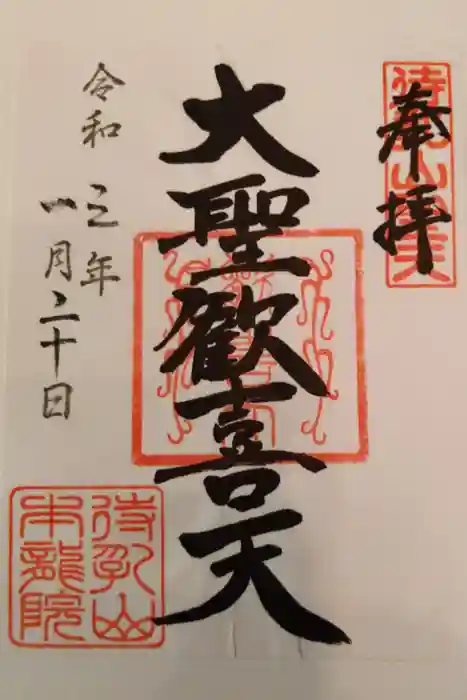 奉拝
大聖歓喜天
令和三年
一月二十日
待乳山
本龍院